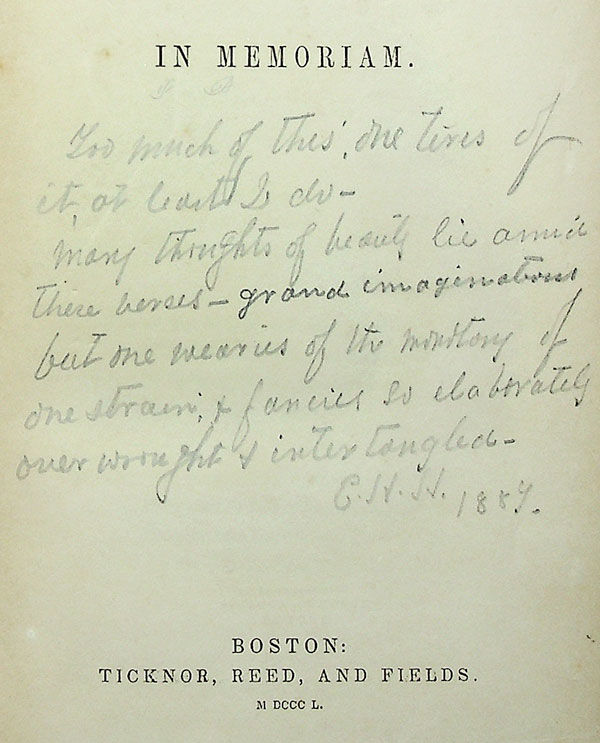 IN MEMORIAM.
Too much of this, one tires of
it, at least I do –
Many thoughts of beauty lie amid
these verses – grand imaginations
but one wearies of the monotony of
one strain, & fancies so elaborately
over wrought & intertangled –
E. H. H. 1887.
BOSTON:
TICKNOR, REED, AND FIELDS.
M DCCC L.